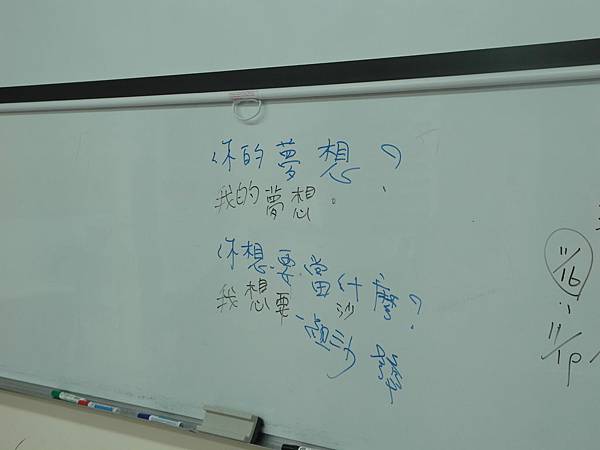 你的夢想?
我的夢想。
你想要當什麼?
我想要 沙
一顆沙
11/16